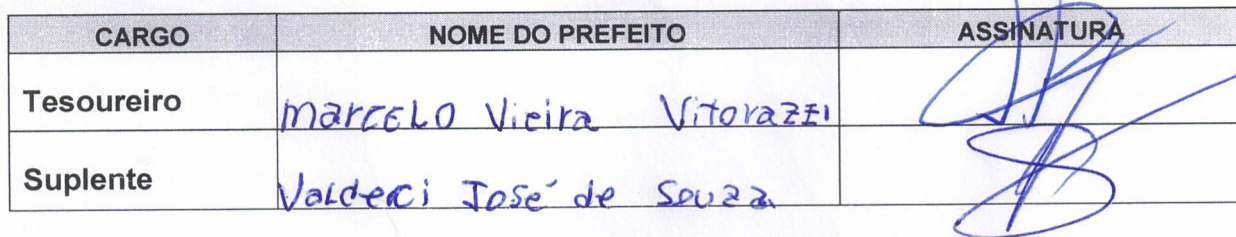 CARGO NOME DO PREFEITO ASSINATURA
Tesoureiro Marcelo Vieira Vitorazzi
Suplente Valdeci José de Souza